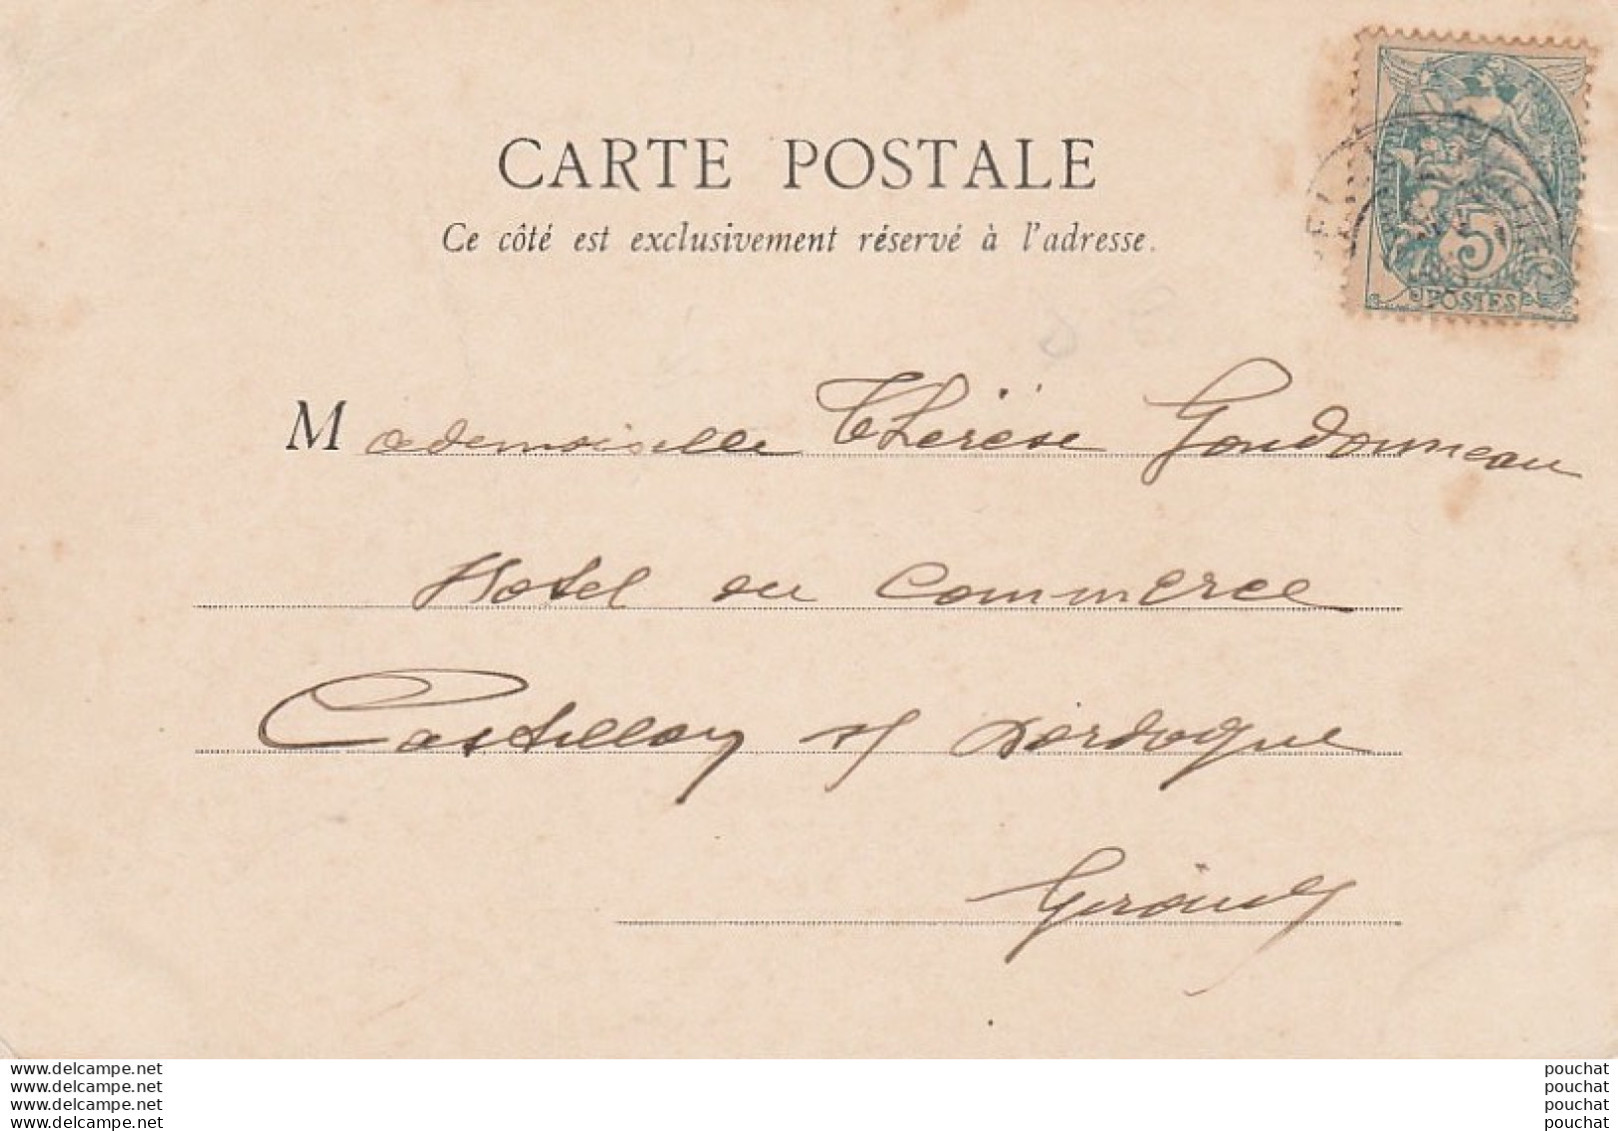 CARTE POSTALE
Ce côté est exclusivement réservé à l'adresse.
5
POSTES
Mademoiselle Thérèse Gondonneau
Hotel du Commerce
Castillon s/ Dordogne
Gironde
www.delcampe.net
www.delcampe.net
www.delcampe.net
www.delcampe.net
pouchat
pouchat
pouchat
pouchat